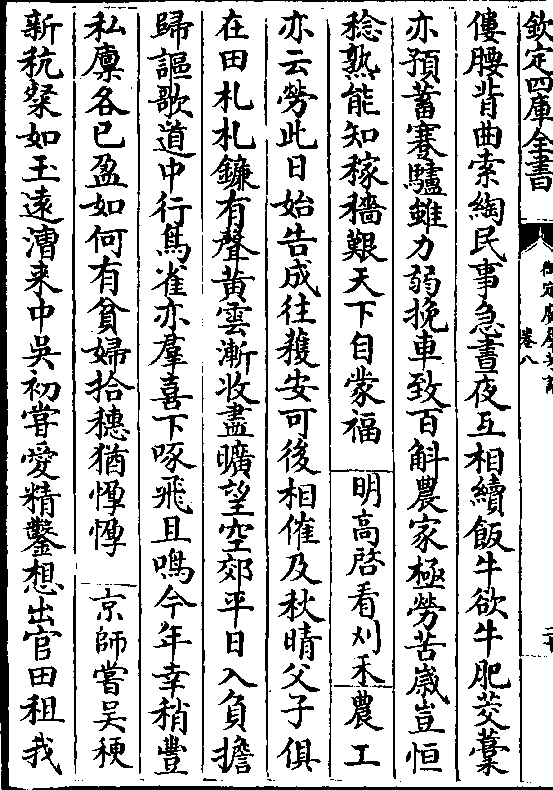 欽定四庫全書
卷八
僂腰背曲索綯民事急晝夜互相續飯牛欲牛肥茭藁
亦預蓄蹇驢雖力弱挽車致百斛農家極勞苦嵗豈恒
稔熟能知稼穡艱天下自蒙福 明高啓看刈禾 農工
亦云勞此日始告成往穫安可後相催及秋晴父子俱
在田札札鐮有聲黄雲漸收盡曠望空郊平日入負擔
歸謳歌道中行鳥雀亦羣喜下啄飛且鳴今年幸稍豐
私廩各已盈如何有貧婦拾穗猶惸惸 京師嘗吴粳
新秔粲如玉遠漕来中吴初甞愛精鑿想出官田租我